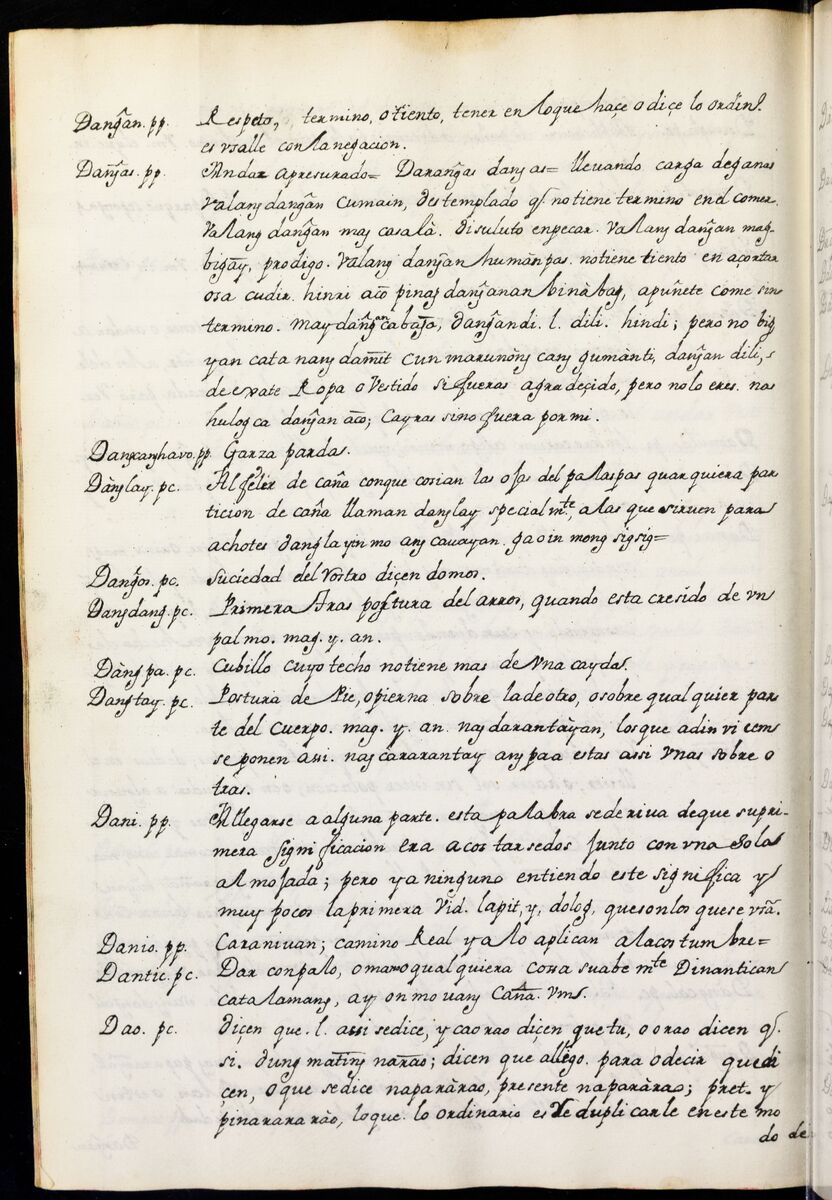 Dang̃an. pp. Respeto, termino, o tiento, tener en lo que haçe o diçe lo ordinº.
es vsalle con la negacion.
Dang̃as. pp. Andar apresurado= Darang̃as dangas= lleuando carga de ganas
valang dang̃an cumain, destemplado q̃. no tiene termino en el comer.
valang dang̃an mag casalà. disuluto en pecar. valang dang̃an mag-
bigay, prodigo. valang dang̃an humànpas. no tiene tiento en açortar
osa cudir. hinri aco pinag dang̃anan binàbag, apuñete come sin
termino. may dang̃an cabaỹa, dang̃andi. l. dili. hindi; pero no big
yan cata nang damit cun marunòng cang gumànti, dang̃an dili, s
de evate Ropa o Vestido si fueras agradeçido, pero no lo eres. na
hulog ca dang̃an aco; Cayras sino fuera por mi.
Dangcanghavo. pp. Garza pardas.
Dànglay. pc. Alfiler de caña con que cosian las ojas del palaspas qual quiera par
ticion de caña llaman danglay special mte, a las que siruen para
achotes danglayin mo ang cauayan. gaoin mong sigsig=
Dang̃os. pc. Suciedad del Rostro diçen domos.
Dangdang. pc. Primera tras postura del arros, quando esta cresido de vn
palmo. mag. y. an.
Dàng pa. pc. Cubillo cuyo techo no tiene mas de vna cayda.
Dangtay. pc. Postura de Pie, o pierna sobre la de otro, o sobre qualquier par
te del Cuerpo. mag. y. an. nagdarantàyan, los que adinvicem
se ponen assi. nagcararantay ang paa estas assi vnas sobre o
tras.
Dani. pp. Allegarse a alguna parte. esta palabra se deriua de que su pri-
mera significacion era acostarse dos junto con vna sola
almojada; pero ya ninguno entiendo este significa y
muy pocos la primera Vid. lapit, y, dolog, que son los que se vsã.
Danio. pp. Caranivan; camino Real ya lo aplican a la costumbre=
Dantic. pc. Dar con palo, o mano qualquiera cossa suabe mte Dinantican
cata lamang, ay on mo uang Caña. vms.
Dao. pc. diçen que. l. assi se dice, y cao rao diçen que tu, oo rao dicen q̃.
si. dung mating narao; dicen que allègo. para o decir que di
çen, o que se dice naparàrao, presente naparàrao; pret. y
pinarararào, lo que. lo ordinario es de duplicarle en este mo
do de